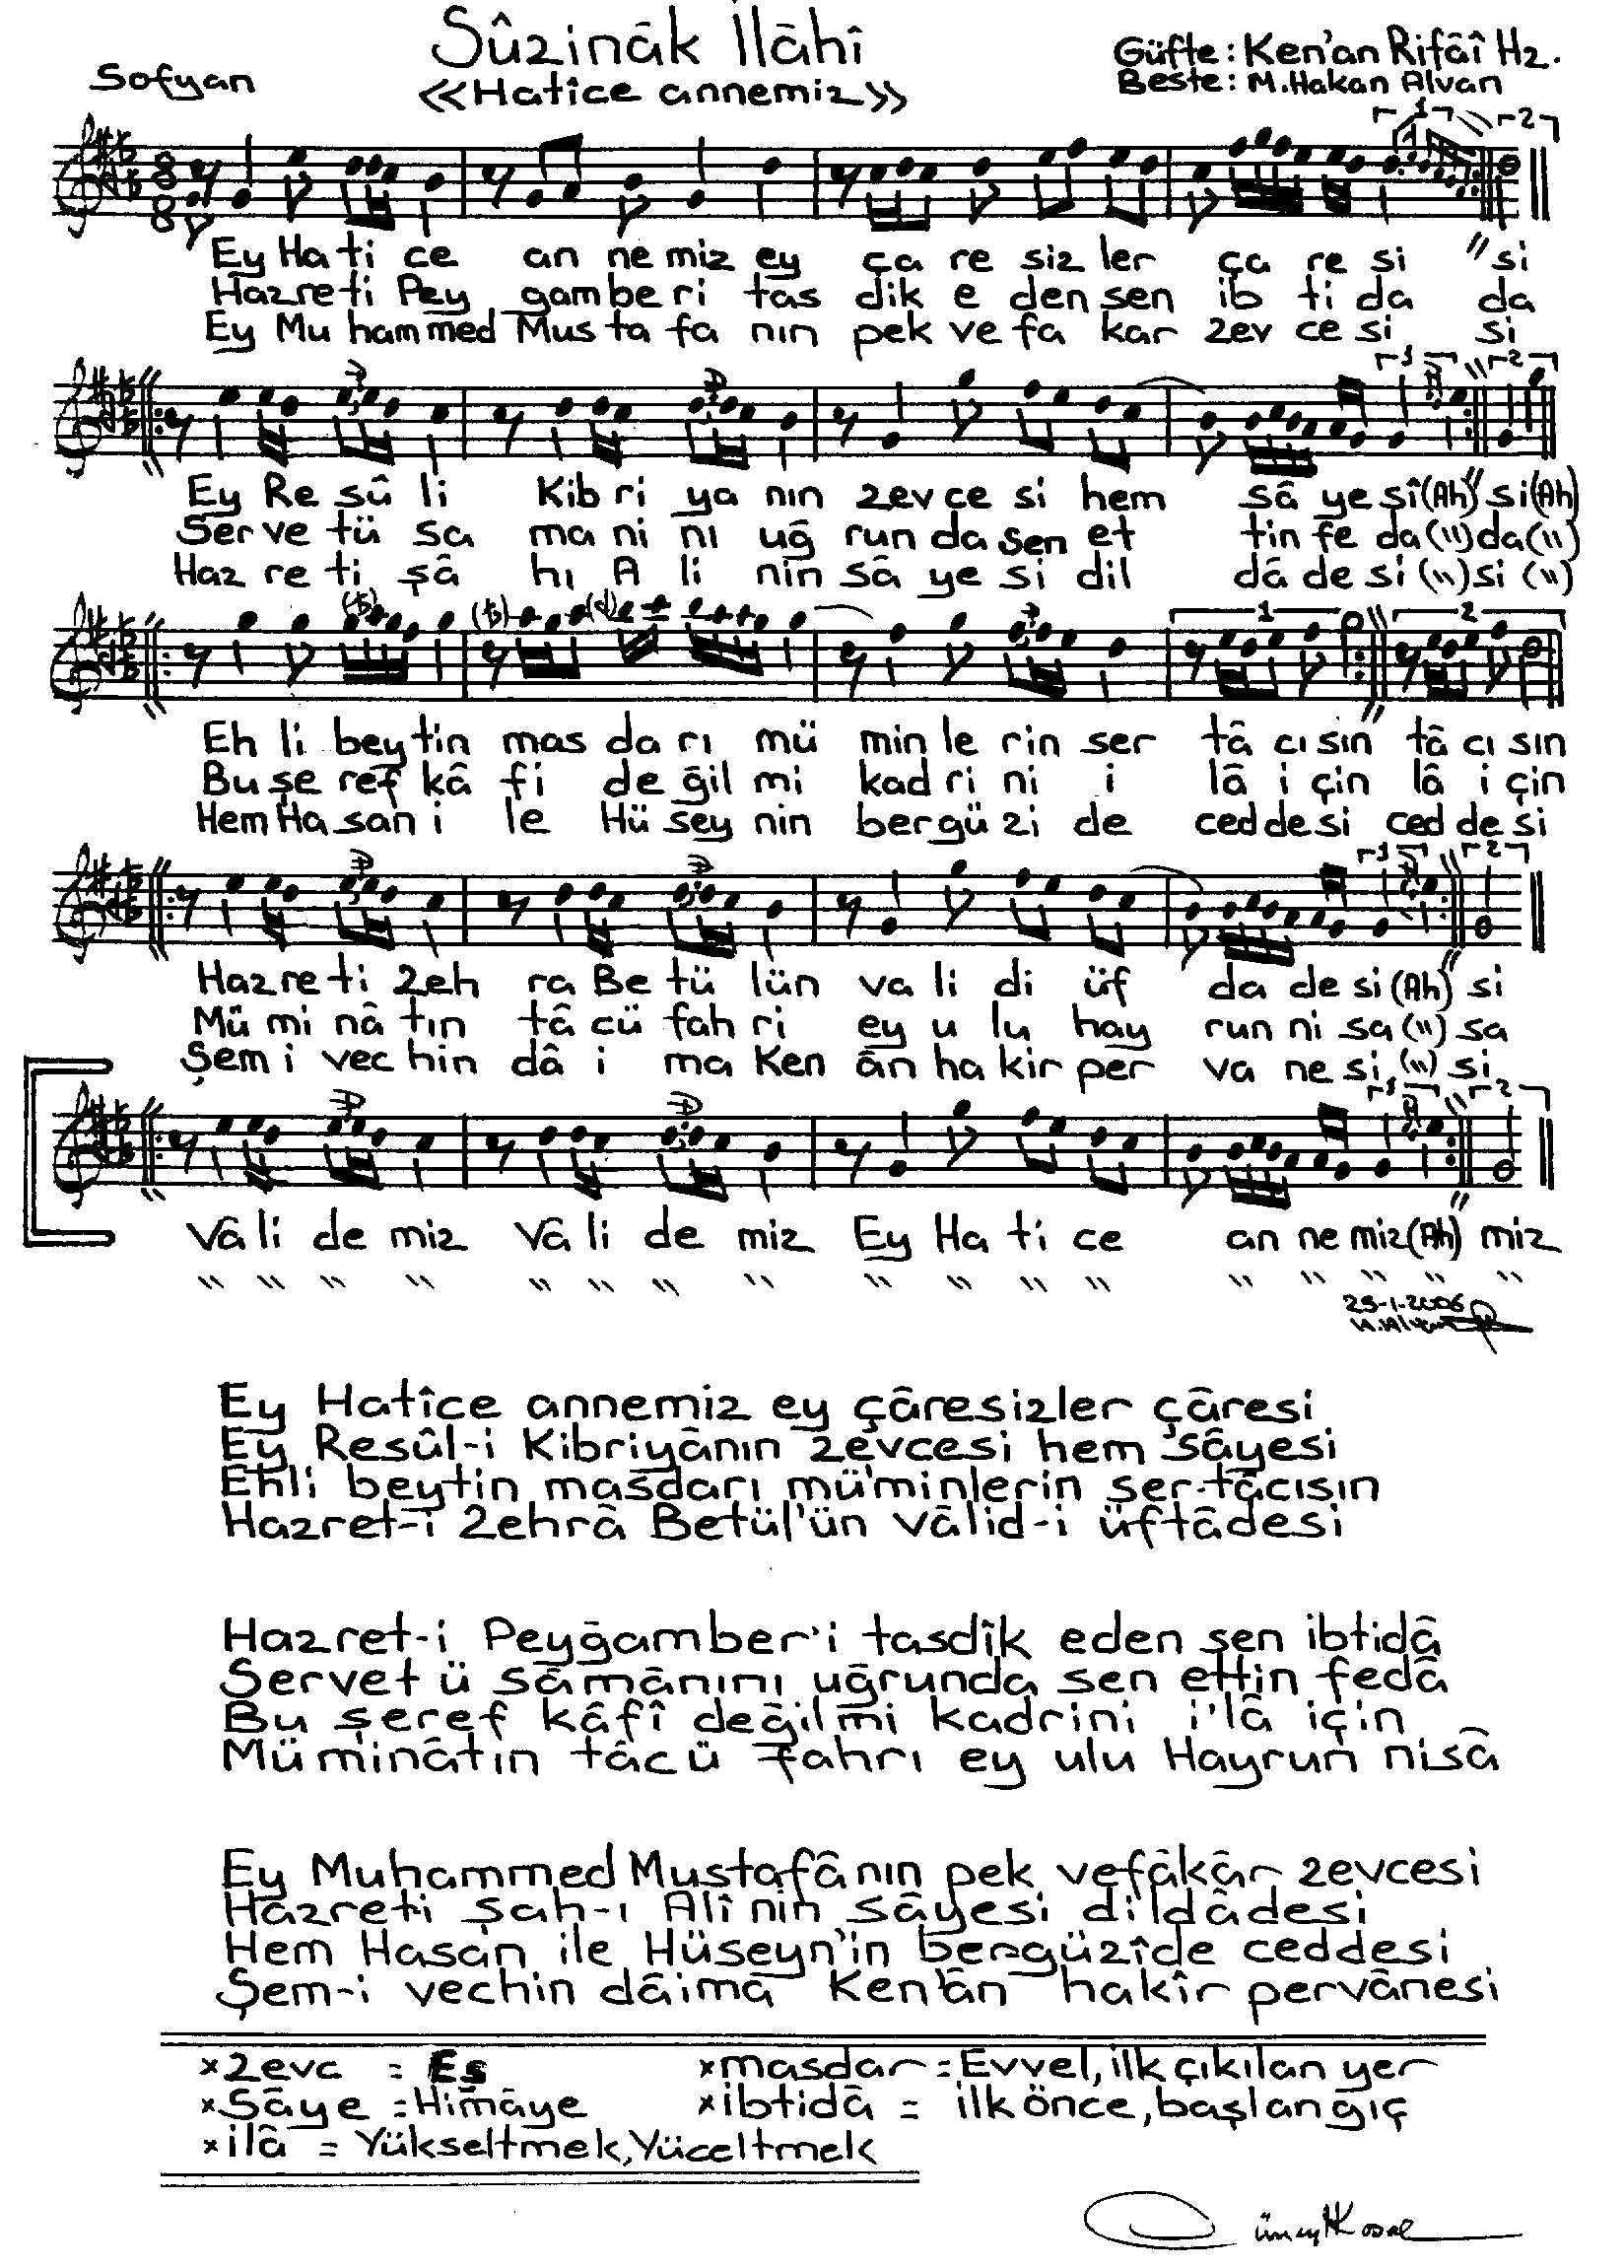 Sûzinâk İlâhî
Sofyan
<<Hatîce annemiz>>
Güfte : Ken'an Rifâî Hz.
Beste : M. Hakan Alvan
1 2
8
8
Ey Ha ti ce an ne miz ey ça re siz ler ça re si " si
Hazre ti Pey gamberi tas dik e den sen ib ti da da
Ey Mu hammed Mus ta fa nın pek ve fa kar zev ce si si
1 2
Ey Re sû li Kib ri ya nın zev ce si hem sâ ye sî (Ah) si (Ah)
Ser ve tü sa ma ni nı uğ run da sen et tin fe da (") da (")
Haz re ti şâ hı A li nin sâ ye si dil dâ de si (") si (")
1 2
Eh li beytin mas da rı mü min le rin ser tâ cı sın tâ cı sın
Bu şe ref kâ fi de ğil mi kad ri ni i lâ i çin lâ i çin
Hem Ha san i le Hü sey nin bergü zi de ced de si ced de si
1 2
Haz re ti Zeh ra Be tü lün va li di üf da de si (Ah) si
Mü mi nâ tın tâ cü fah ri ey u lu hay run ni sa (") sa
Şem i vec hin dâ i ma Ken ân ha kir per va ne si (") si
1 2
Vâ li de miz Vâ li de miz Ey Ha ti ce an ne miz (Ah) miz
" " " " " " " " " " " " " " " " "
25-1-2006
Ey Hatîce annemiz ey çâresizler çâresi
Ey Resûl-i Kibriyânın zevcesi hem sâyesi
Ehli beytin masdarı mü'minlerin ser-tâcısın
Hazret-i Zehrâ Betül'ün vâlid-i üftâdesi
Hazret-i Peyğamber'i tasdîk eden sen ibtidâ
Servet ü sâmânını uğrunda sen ettin fedâ
Bu şeref kâfî değilmi kadrini i'lâ için
Müminâtın tâcü fahrı ey ulu Hayrun nisâ
Ey Muhammed Mustafânın pek vefâkâr zevcesi
Hazreti şah-ı Alî nin sâyesi dildâdesi
Hem Hasan ile Hüseyn'in bergüzîde ceddesi
Şem-i vechin dâimâ Ken'ân hakîr pervânesi
×Zevc = Eş ×masdar = Evvel, ilk çıkılan yer
×Sâye = Himâye ×ibtidâ = ilk önce, başlangıç
×ilâ = Yükseltmek, Yüceltmek